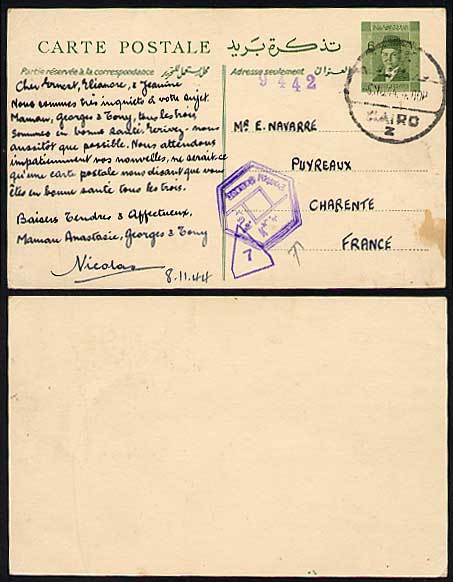 CARTE POSTALE تذكرة بريد
Partie réservée à la correspondance
Adresse seulement العنوان
9442
Cher Ernest, Elianore, & Jeanine
Nous sommes très inquiets à votre sujet.
Maman, Georges & Tony, tous les trois
sommes en bonne santé. Ecrivez-nous
aussitôt que possible. Nous attendons
impatiemment vos nouvelles, ne serait-ce
qu'une carte postale nous disant que vous
êtes en bonne santé tous les trois.
Baisers Tendres & Affectueux,
Maman Anastasie, Georges & Tony
Nicolas
8.11.44
CAIRO
2
MR E. NAVARRE
PUYREAUX
CHARENTE
FRANCE
7